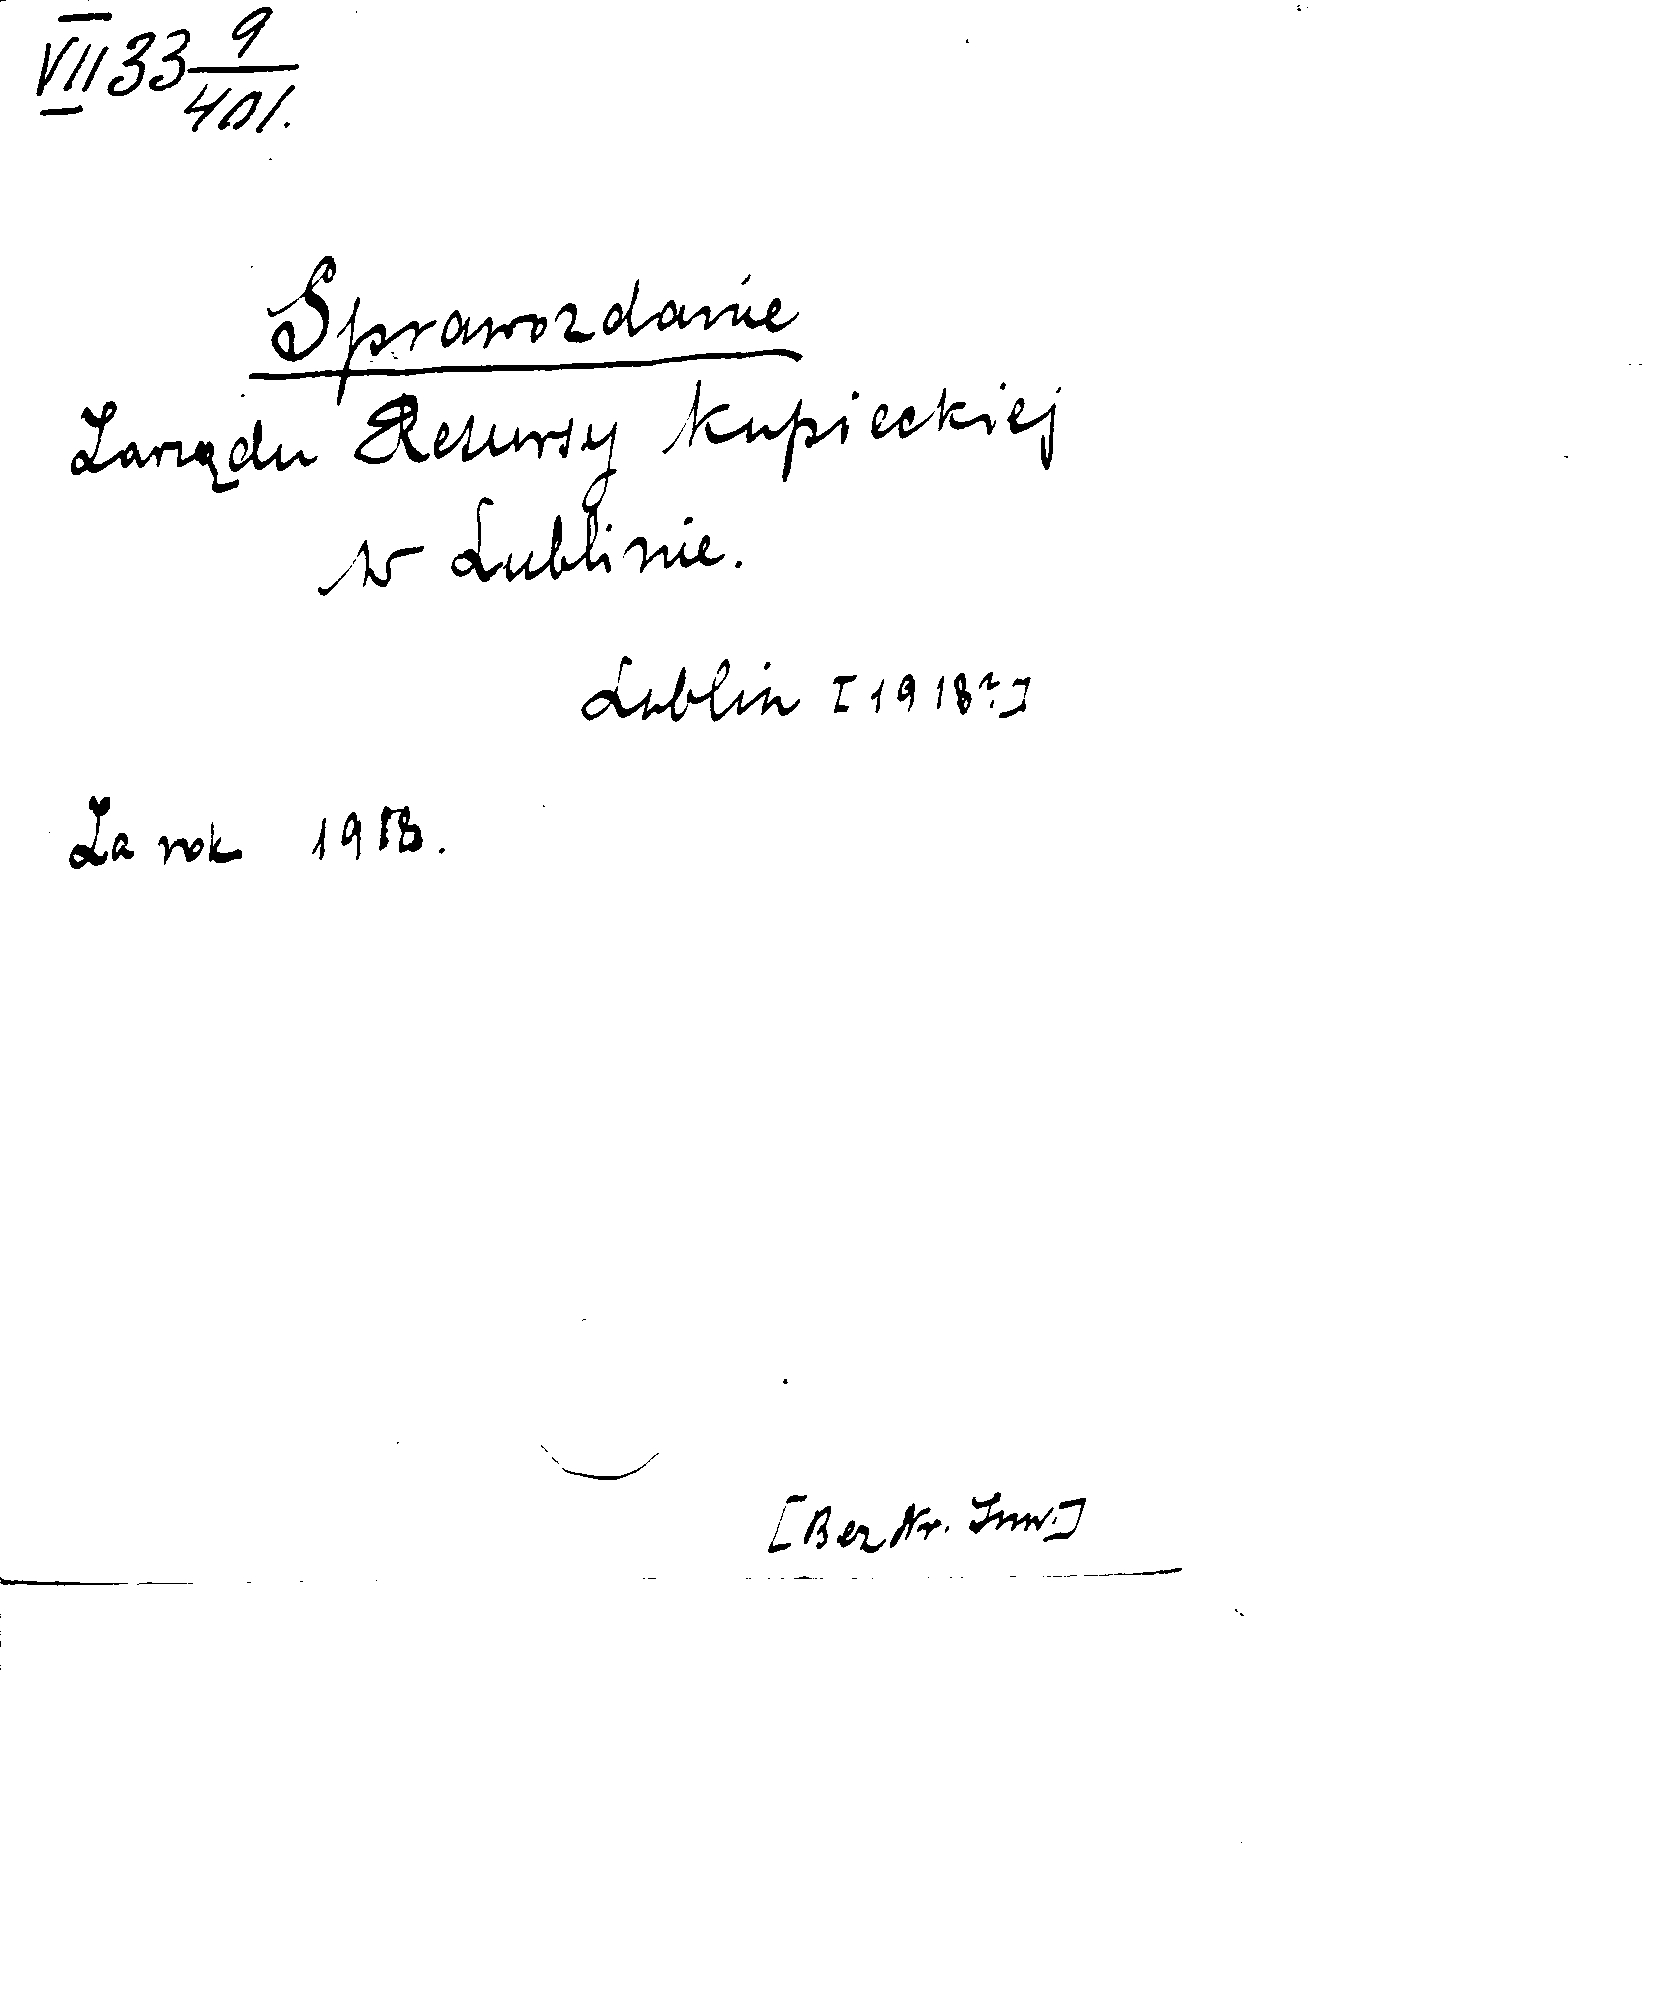 VII 33 9
401.
Sprawozdanie
Zarządu Resursy Kupieckiej
w Lublinie.
Lublin [1918?]
Za rok 1918.
[Bez Nr. Inw.]